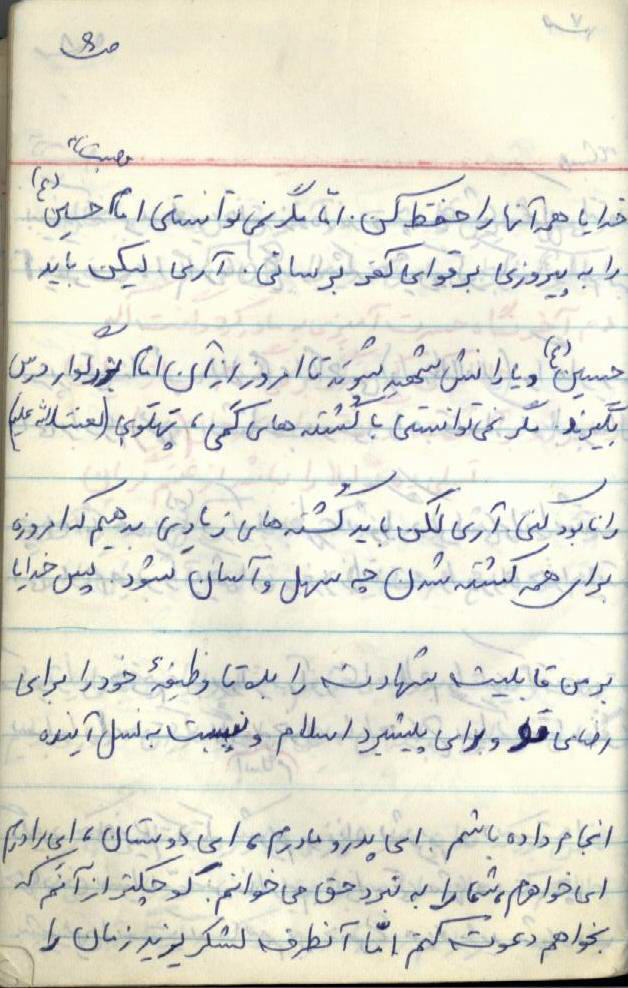 ص ۶
وصیتنامه
خدایا همه آنها را حفظ کن. امّا مگر نمی توانستی امام حسین (ع)
را به پیروزی بر قوای کفر برسانی. آری لیکن باید
حسین (ع) و یارانش شهید شوند تا امروز از آن امام بزرگوار درس
بگیرند. مگر نمی توانستی با کشته های کمی، پهلوی (لعنت الله علیه)
را نابود کنی آری لکن باید کشته های زیادی بدهیم که امروزه
برای همه کشته شدن چه سهل و آسان شود. پس خدایا
بر من قابلیت شهادت را بده تا وظیفهٔ خود را برای
رضای تو و برای پیشبرد اسلام و نسبت به نسل آینده
انجام داده باشم. ای پدر و مادرم، ای دوستان، ای برادرم
ای خواهرم، شما را به نبرد حق می خوانم. کوچکتر از آنم که
بخواهم دعوت کنم امّا آنطرف لشکر یزید زمان را